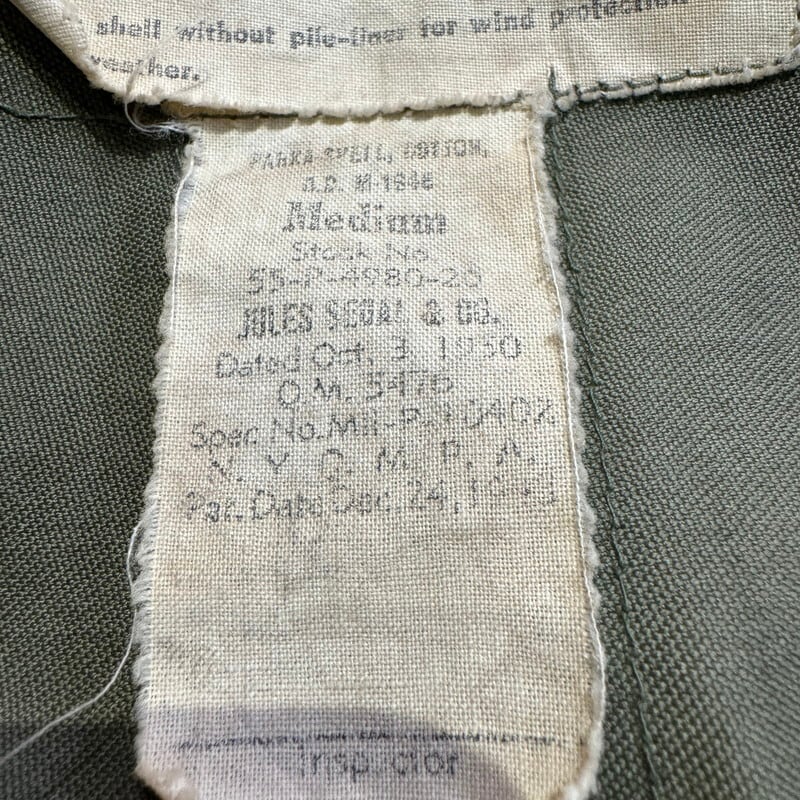 shell without pile-liner for wind protection
weather.
PARKA SHELL, COTTON,
O.D. M-1948
Medium
Stock No.
55-P-4980-28
JULES SEGAL & CO.
Dated Oct. 3, 1950
O.M. 5476
Spec. No. Mil-P-10402
N. Y. Q. M. P. A.
Pat. Date Dec. 24,
Inspector